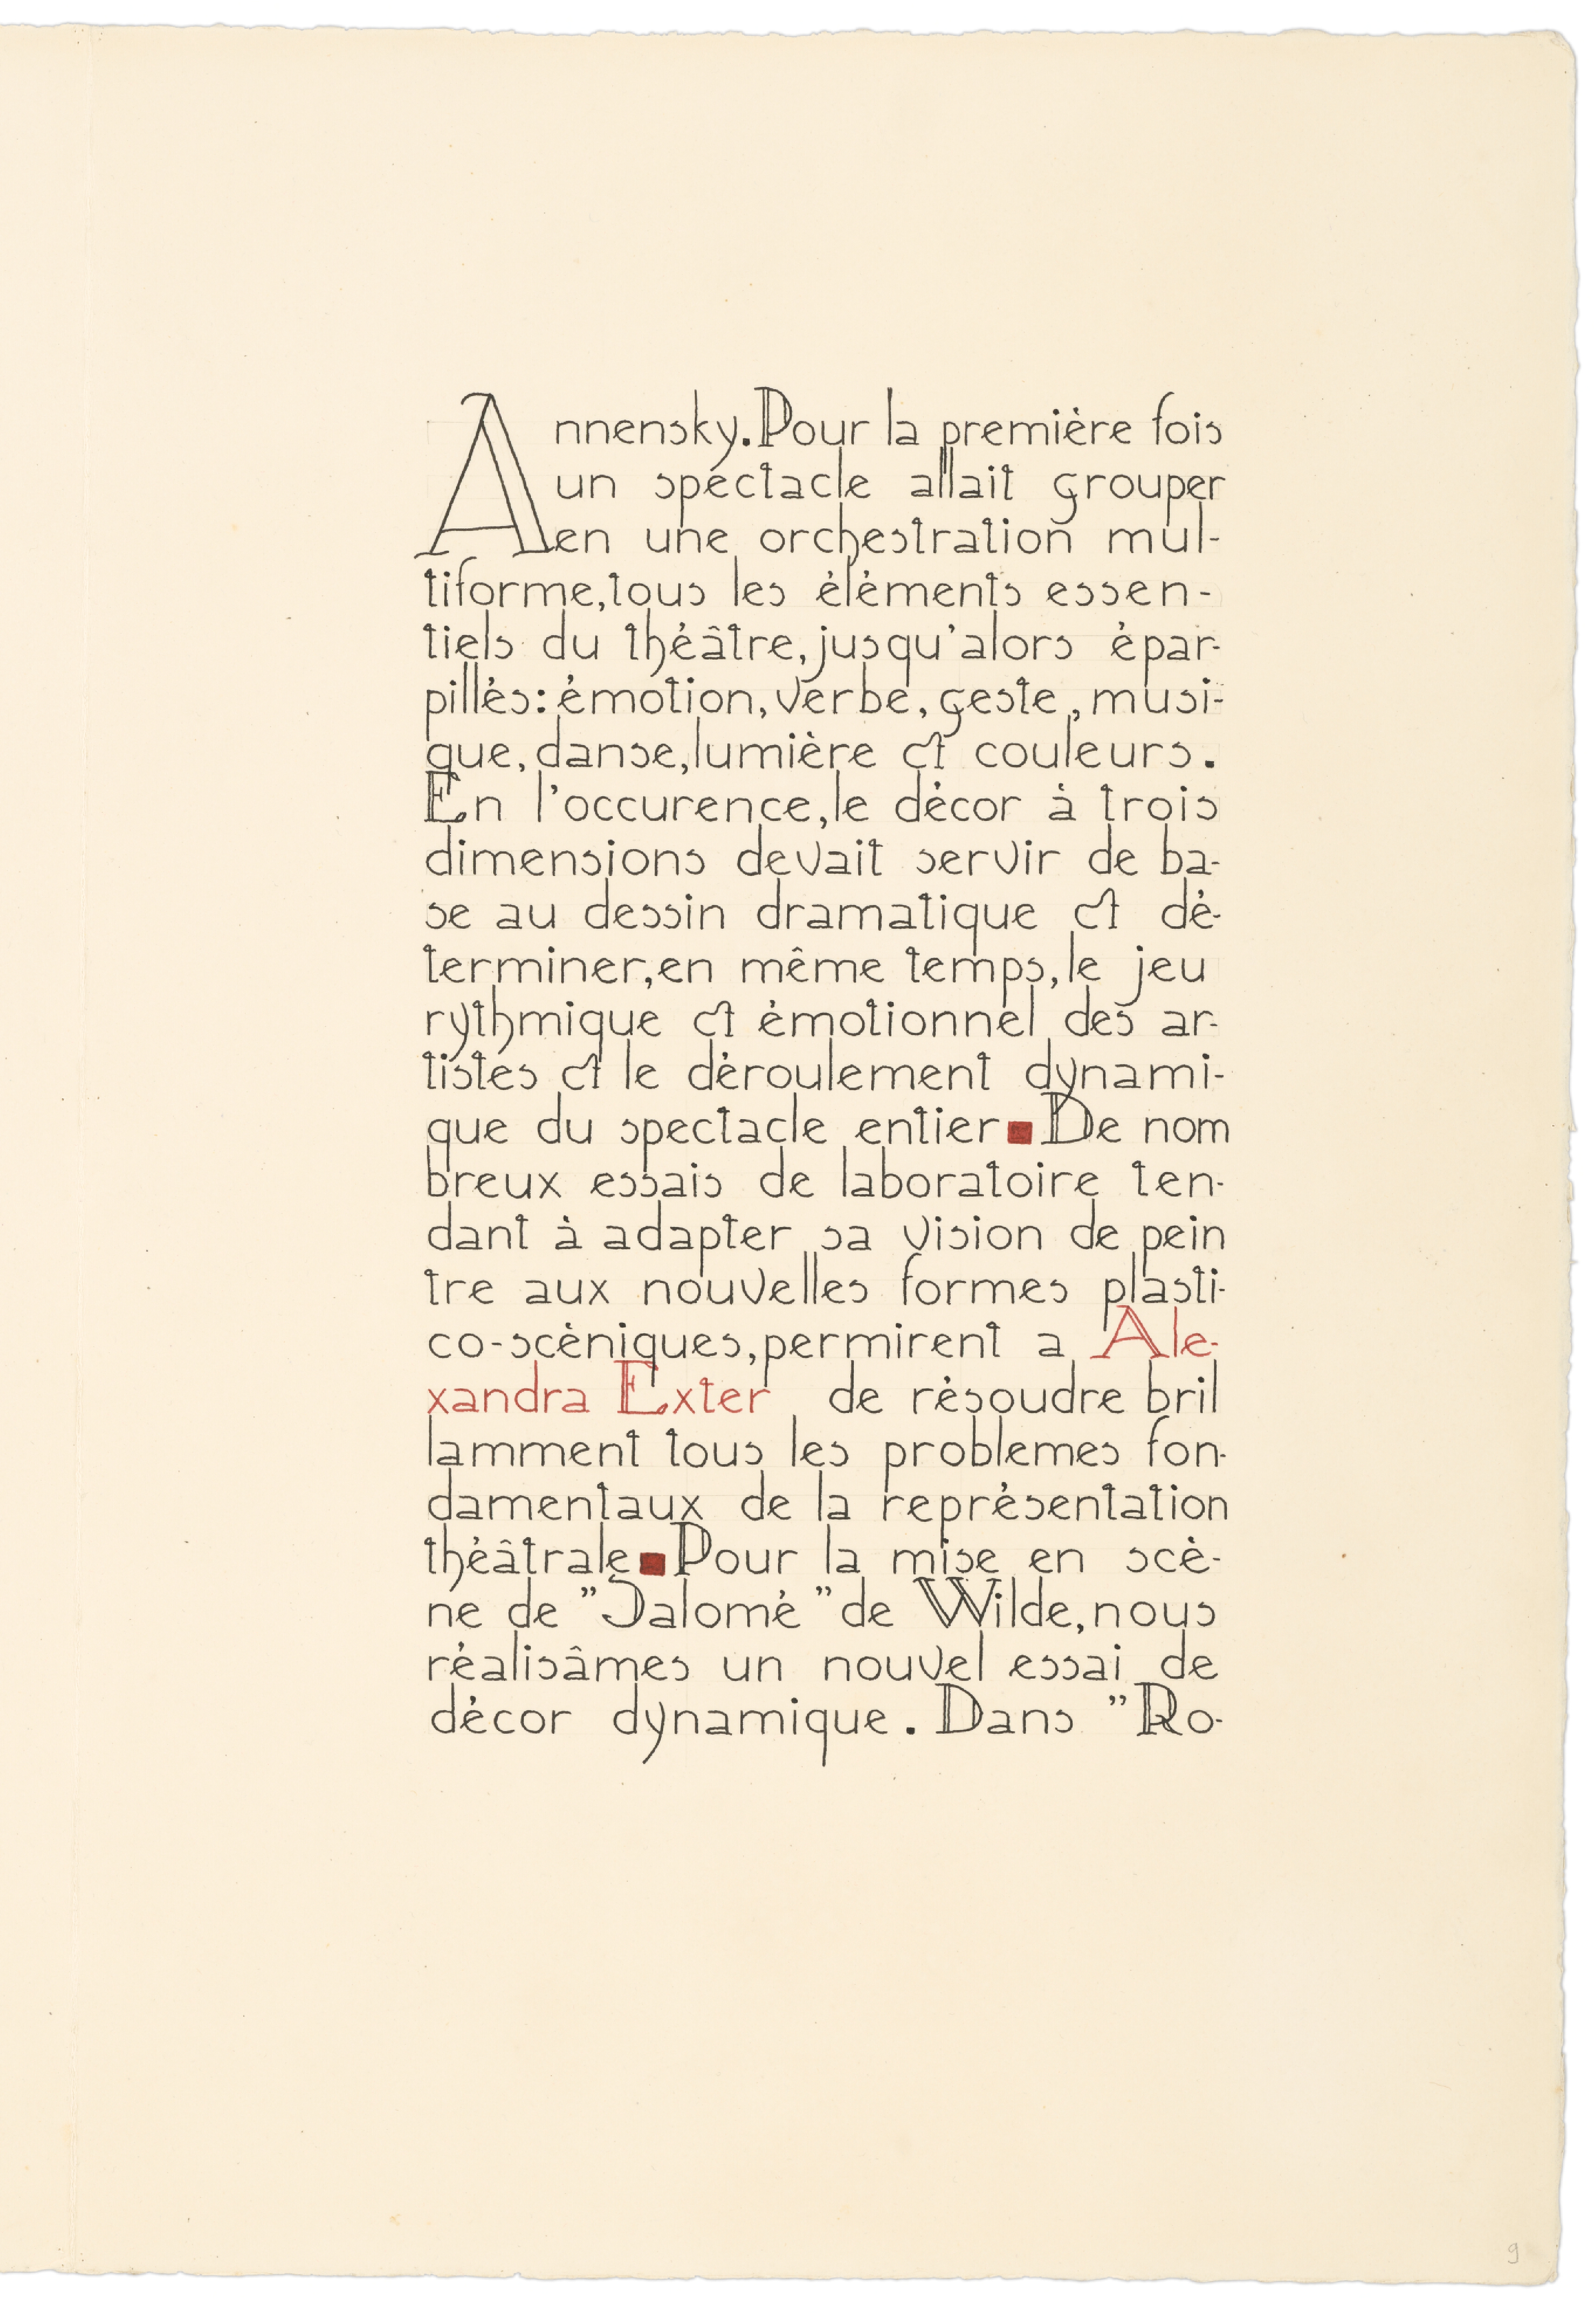 Annensky. Pour la première fois
un spectacle allait grouper
en une orchestration mul-
tiforme, tous les éléments essen-
tiels du théâtre, jusqu'alors épar-
pillés: émotion, verbe, geste, musi-
que, danse, lumière et couleurs.
En l'occurence, le décor à trois
dimensions devait servir de ba-
se au dessin dramatique et dé-
terminer, en même temps, le jeu
rythmique et émotionnel des ar-
tistes et le déroulement dynami-
que du spectacle entier ■ De nom
breux essais de laboratoire ten-
dant à adapter sa vision de pein
tre aux nouvelles formes plasti-
co-scèniques, permirent a Ale-
xandra Exter de résoudre bril
lamment tous les problemes fon-
damentaux de la représentation
théâtrale ■ Pour la mise en scè-
ne de "Salomé" de Wilde, nous
réalisâmes un nouvel essai de
décor dynamique. Dans "Ro-
9